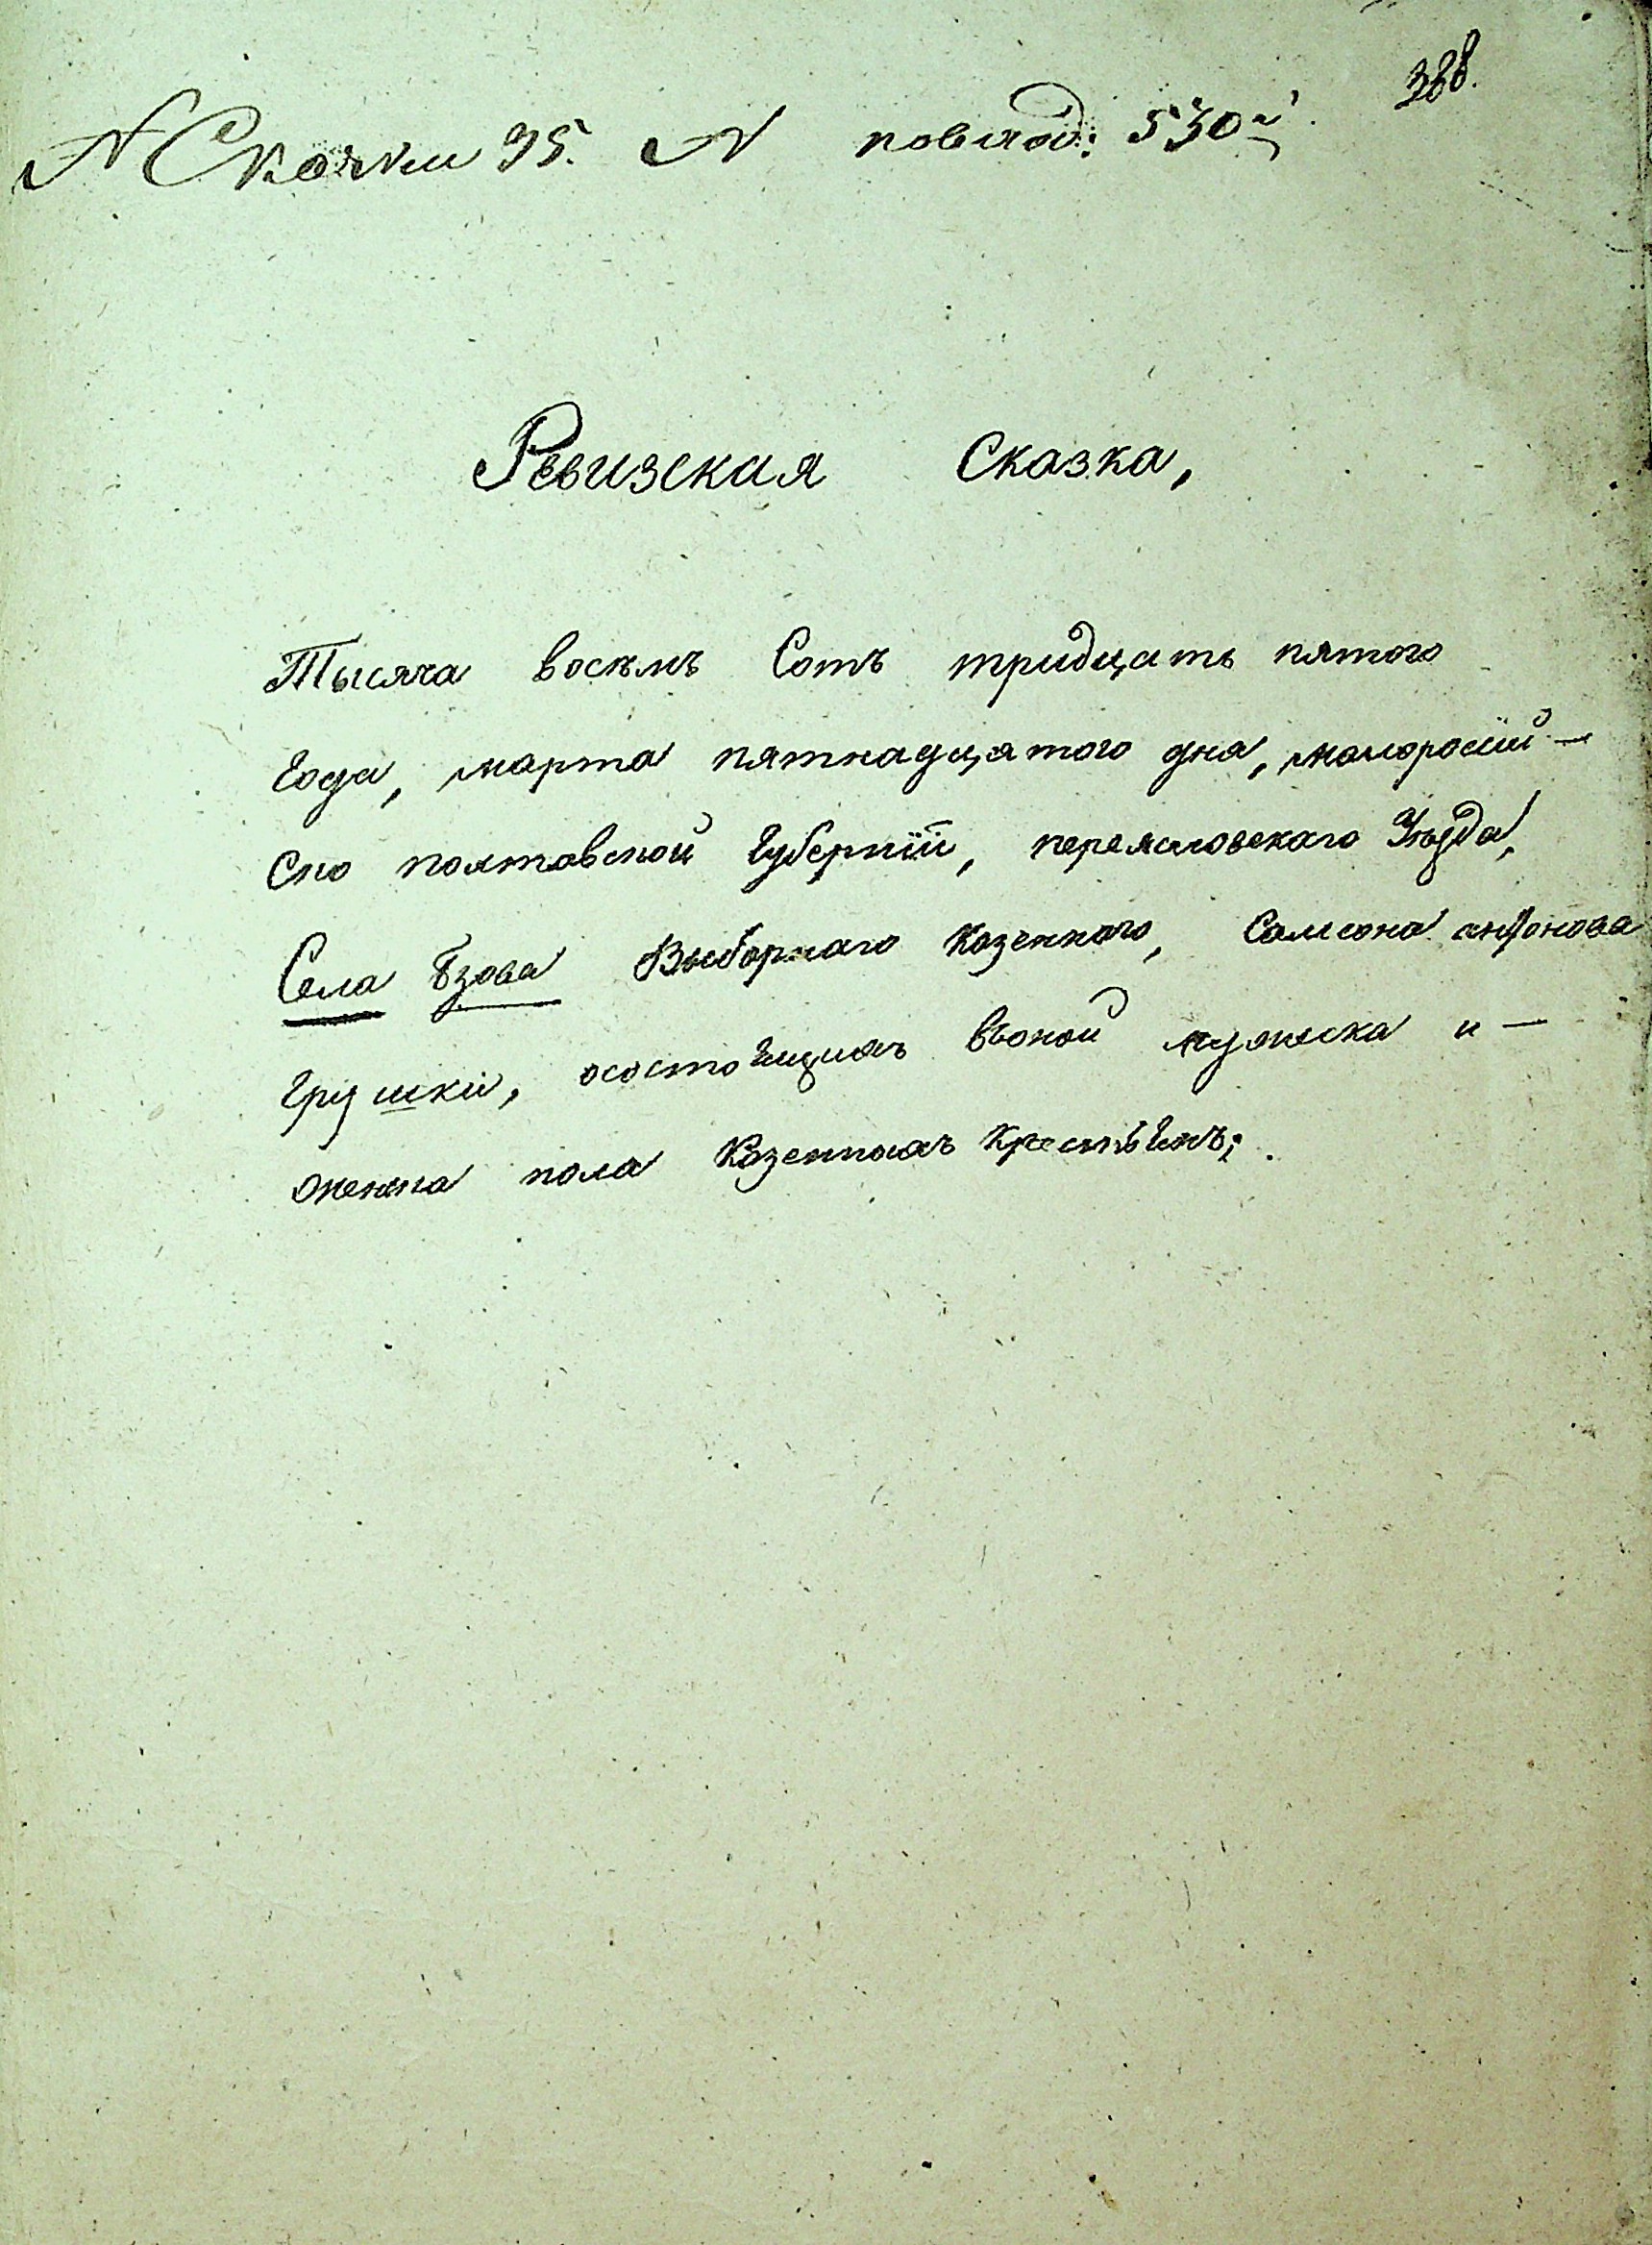 388.
N Скаски 95. N повклад: 530й.
Ревизская Сказка,
Тысяча восемъ Сотъ тридцать пятого
Года, марта пятнадцятого дня, малоросїй-
Ско полтавской Губернїй, переясловскаго Уѣзда,
Села Бзова Выборнаго Казенного, Самсона антонова
Грушки, осостоЕщихъ вьоной мужеска и -
женска пола Казенныхъ КрестьЕнъ;.